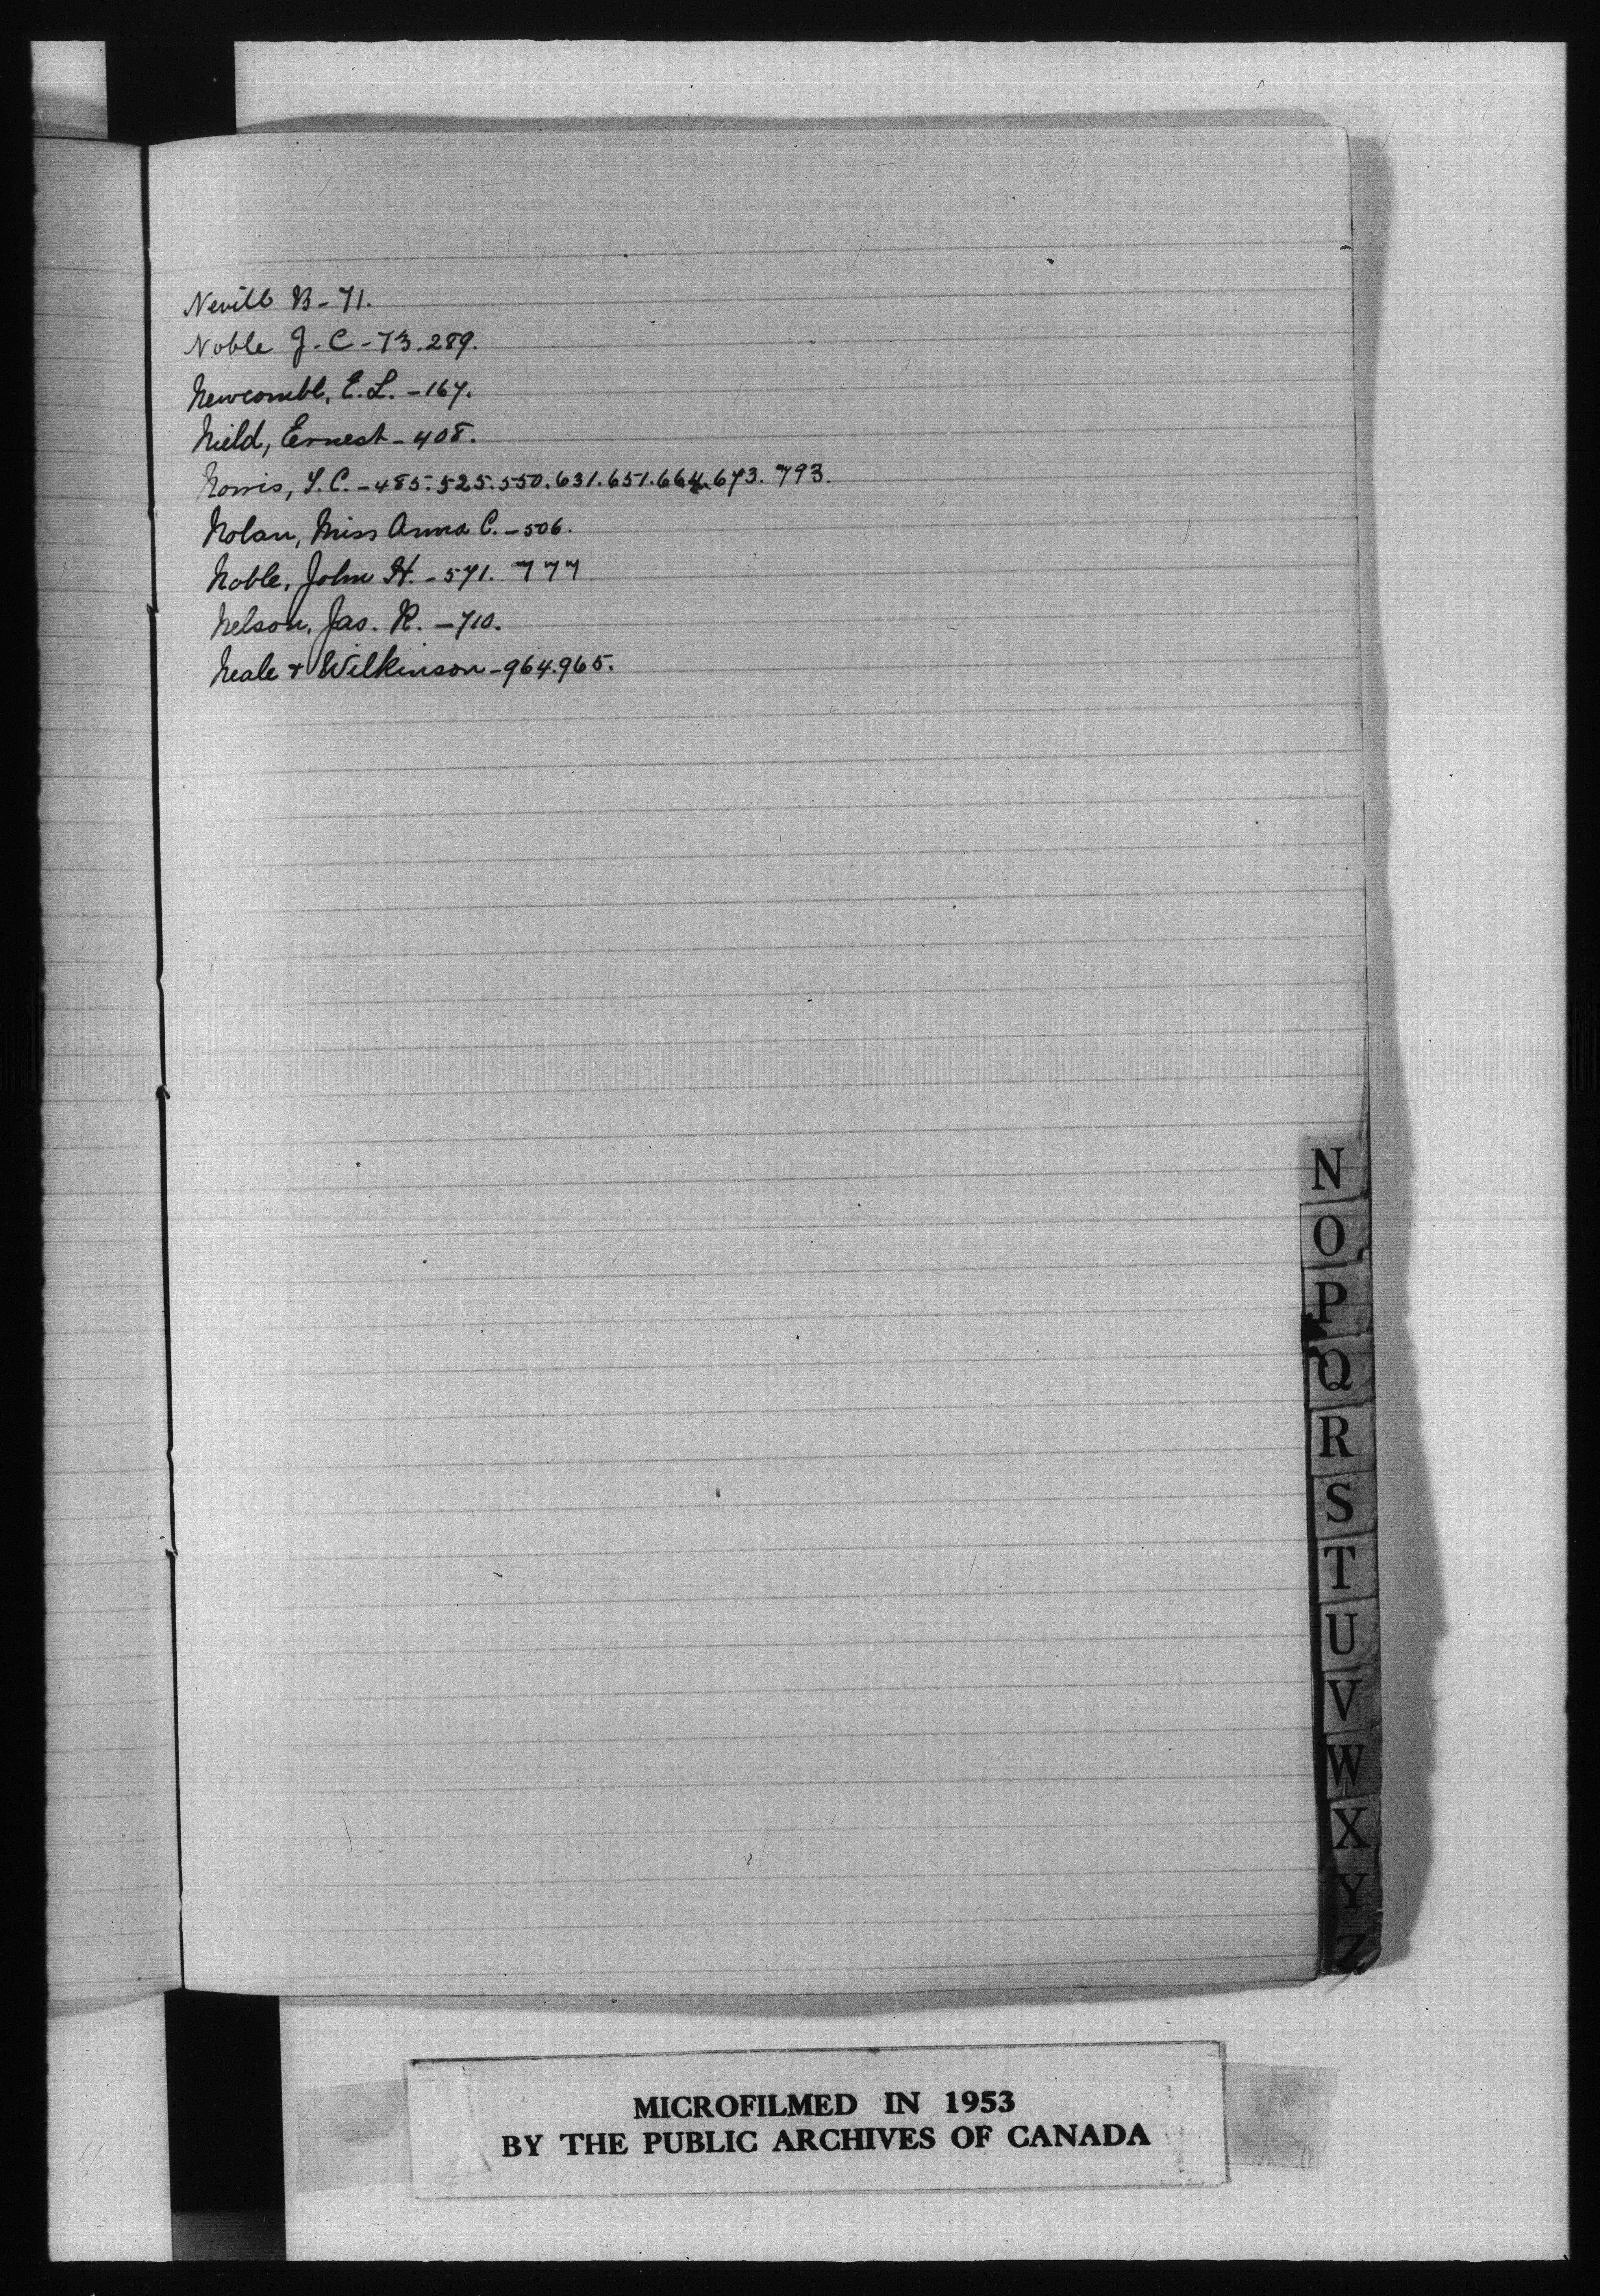 Nevill B - 71.
Noble J. C - 73. 289.
Newcombe, E. L. - 167.
Nield, Ernest - 408.
Norris, T. C. - 485. 525. 550. 631. 651. 664. 673. 793.
Nolan, Miss Anna C. - 506.
Noble, John H. - 571. 777
Nelson, Jas. R. - 710.
Neale & Wilkinson - 964. 965.
N
O
P
Q
R
S
T
U
V
W
X
Y
Z
MICROFILMED IN 1953
BY THE PUBLIC ARCHIVES OF CANADA